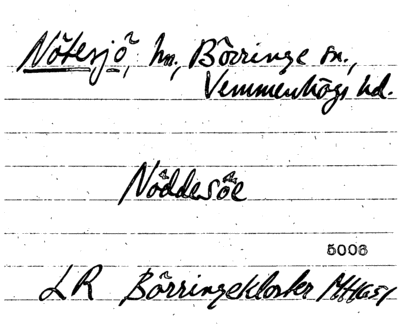 Nötesjö, hn., Börringe sn.,
Vemmenhögs hd.
Nöddesöe
5006
LR Börringekloster